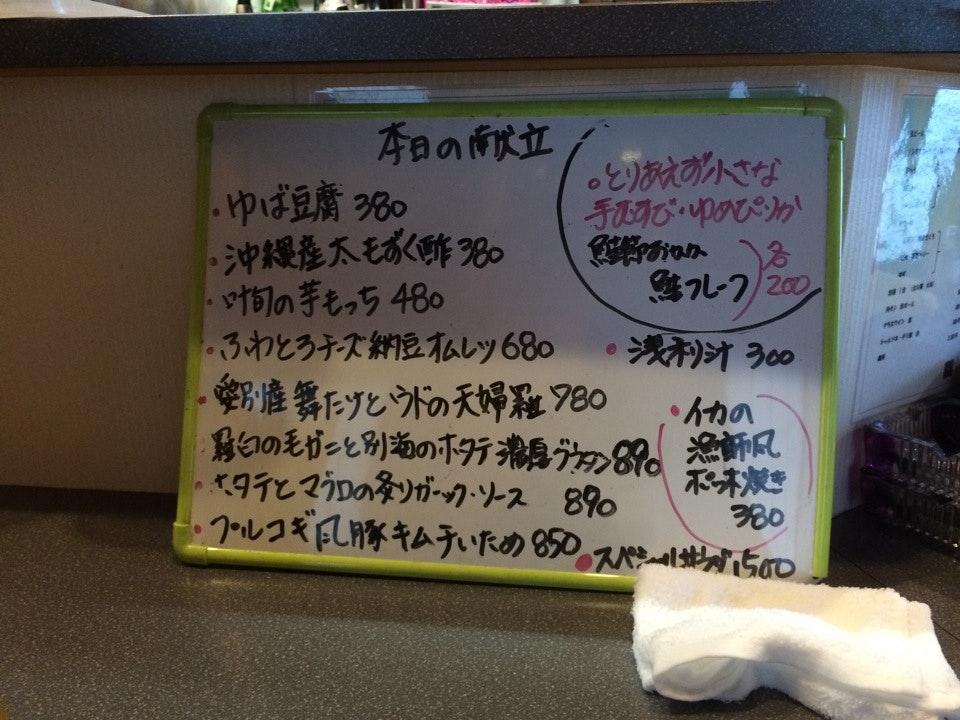 本日の献立
ゆば豆腐 380
沖縄産太もずく酢 380
旬の芋もっち 480
ふわとろチーズ納豆オムレツ 680
愛別産舞たけとウドの天婦羅 780
羅臼の毛ガニと別海のホタテ濃厚グラタン 890
ホタテとマグロの炙りガーリック・ソース 890
プルコギ風豚キムチいため 850
とりあえず小さな
手むすび・ゆめぴりか
鮭節おかか
鮭フレーク
各
200
浅利汁 300
イカの
漁師風
ポッポ焼き
380
スペシャル 1500